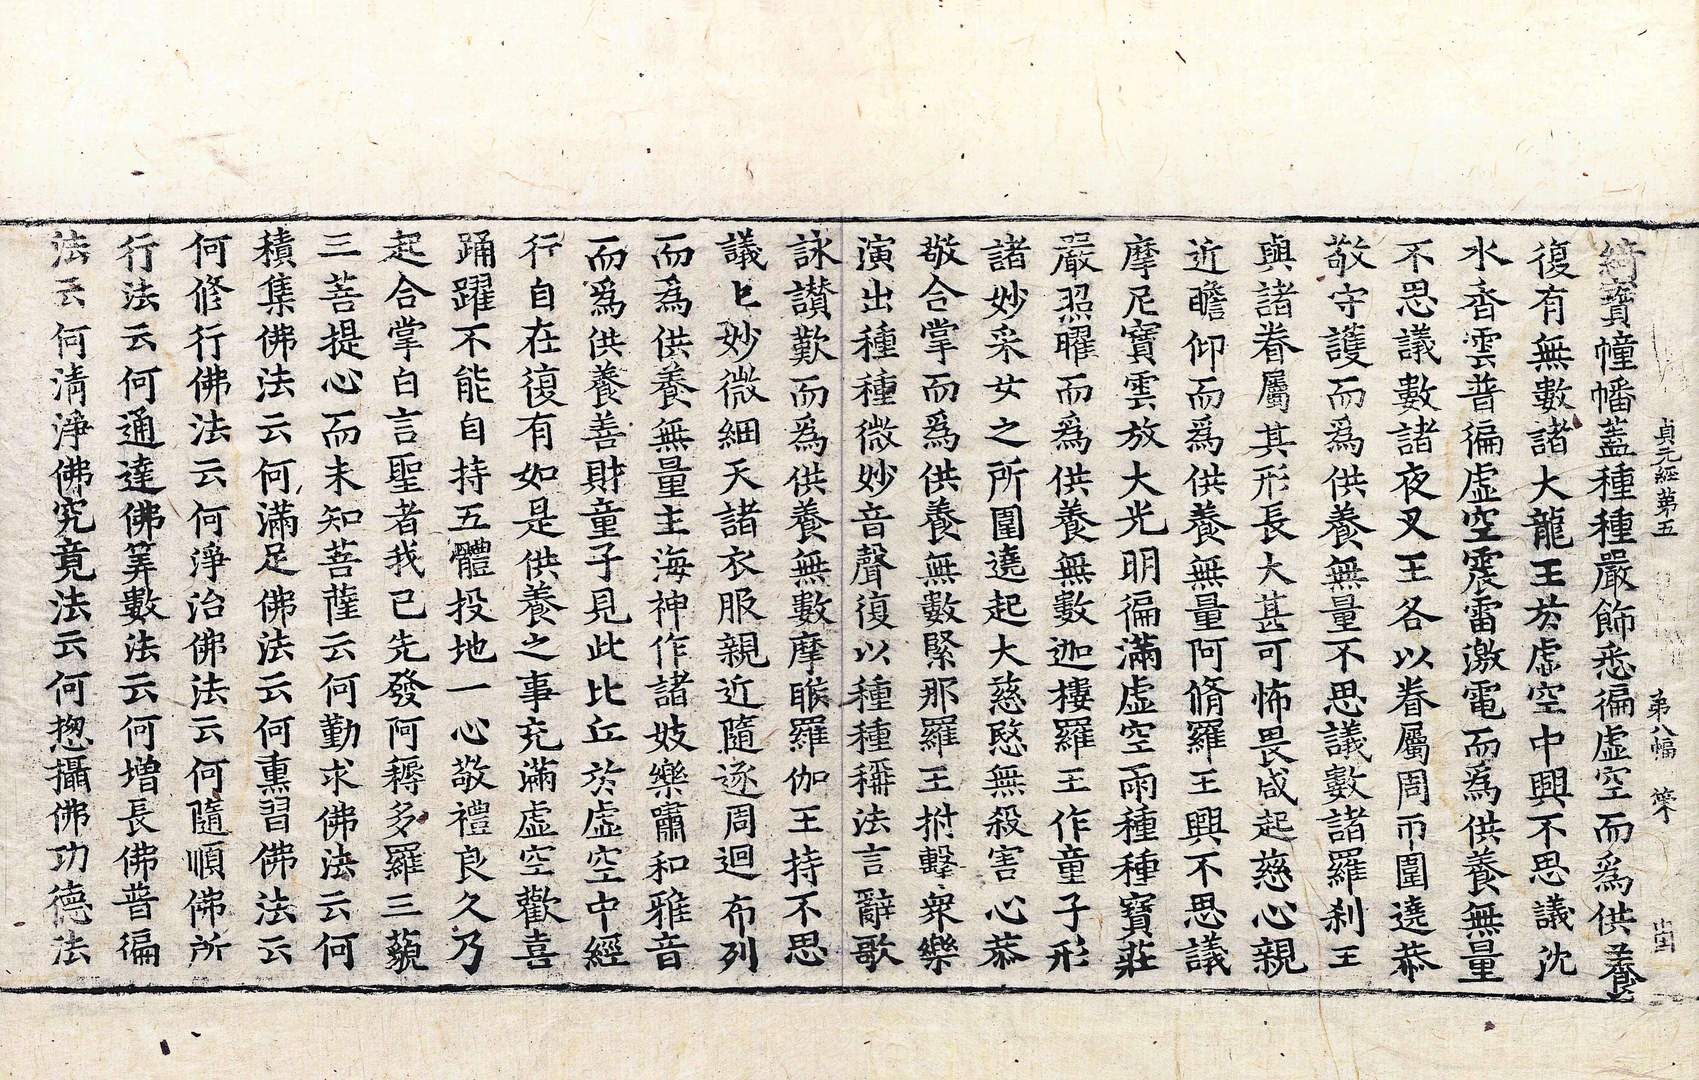 貞元經第五 第八幅
綺寶幢幡蓋種種嚴飾悉徧虛空而爲供養
復有無數諸大龍王於虛空中興不思議沈
水香雲普徧虛空震雷激電而爲供養無量
不思議數諸夜叉王各以眷屬周帀圍遶恭
敬守護而爲供養無量不思議數諸羅刹王
與諸眷屬其形長大甚可怖畏咸起慈心親
近瞻仰而爲供養無量阿脩羅王興不思議
摩尼寶雲放大光明徧滿虛空雨種種寶莊
嚴照曜而爲供養無數迦樓羅王作童子形
諸妙采女之所圍遶起大慈愍無殺害心恭
敬合掌而爲供養無數緊那羅王拊擊衆樂
演出種種微妙音聲復以種種稱法言辭歌
詠讃歎而爲供養無數摩睺羅伽王持不思
議上妙微細天諸衣服親近隨逐周迴布列
而爲供養無量主海神作諸妓樂嘯和雅音
而爲供養善財童子見此比丘於虛空中經
行自在復有如是供養之事充滿虛空歡喜
踊躍不能自持五體投地一心敬禮良久乃
起合掌白言聖者我已先發阿耨多羅三藐
三菩提心而未知菩薩云何勤求佛法云何
積集佛法云何滿足佛法云何熏習佛法云
何修行佛法云何淨治佛法云何隨順佛所
行法云何通達佛筭數法云何增長佛普徧
法云何清淨佛究竟法云何揔攝佛功德法